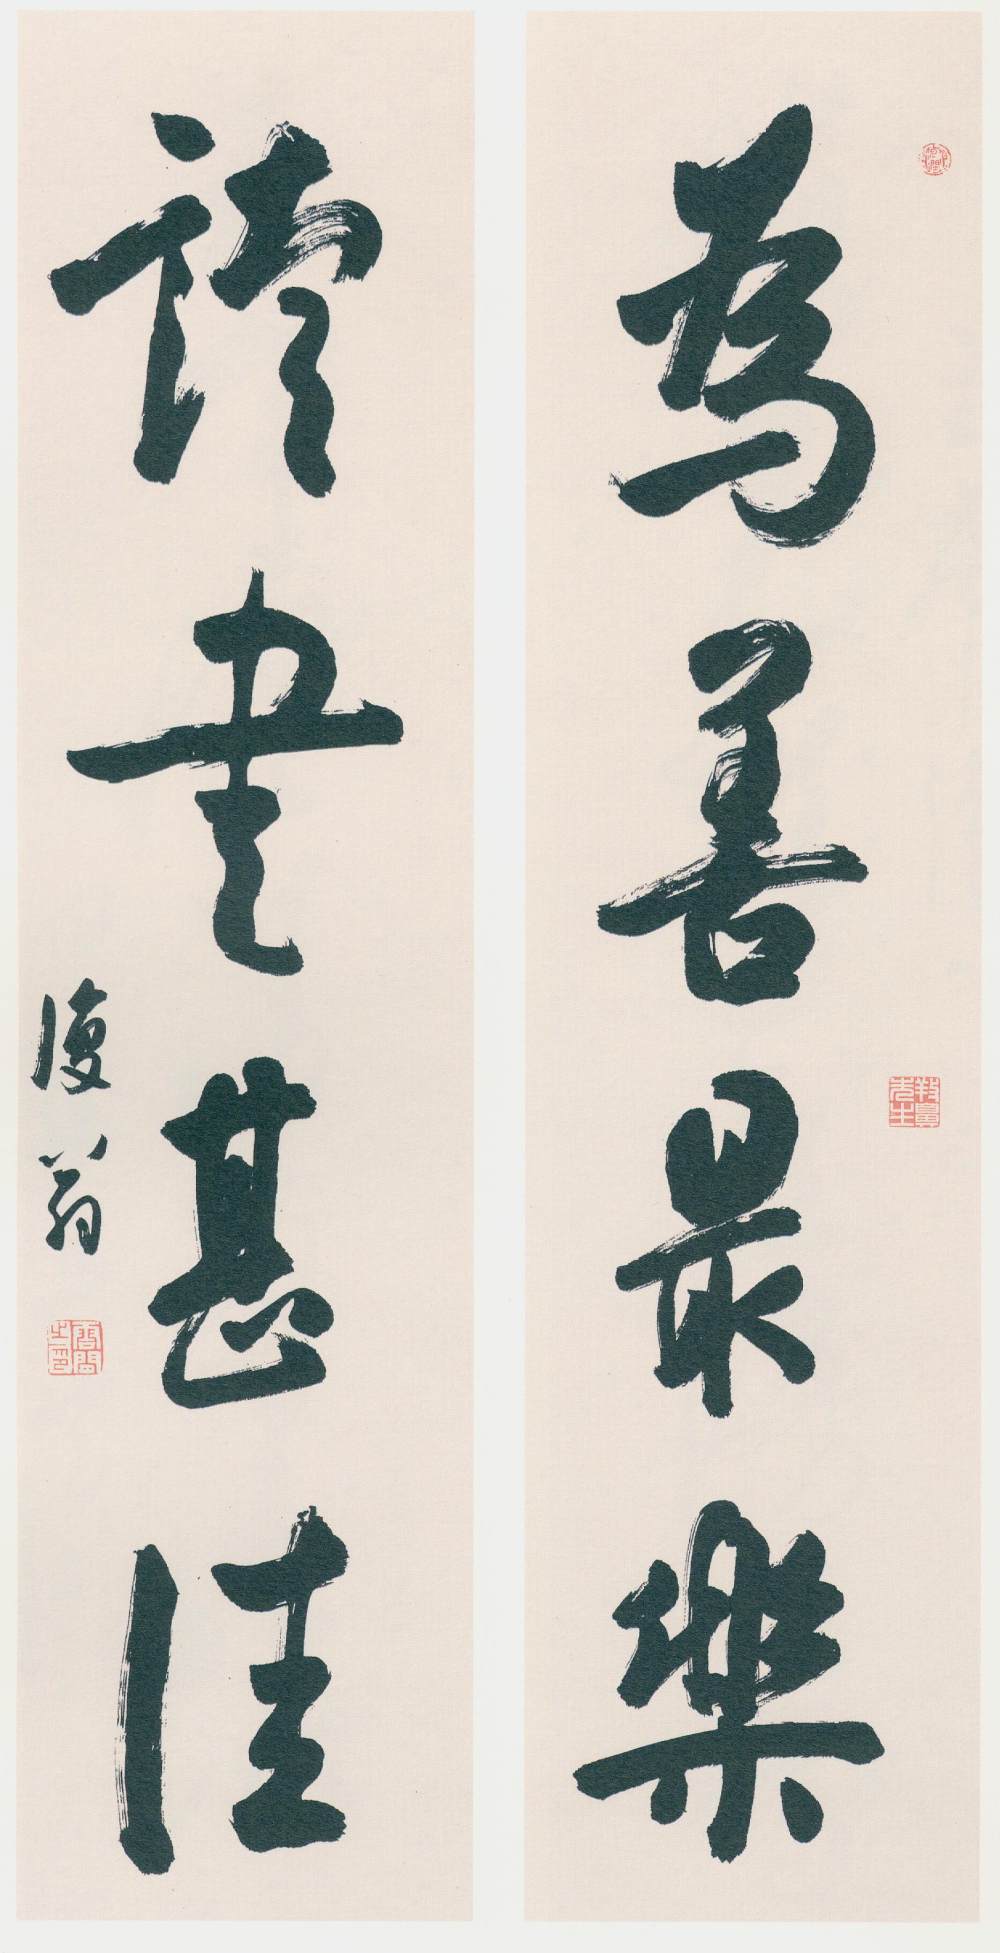 為善最樂
讀書甚佳
復翁